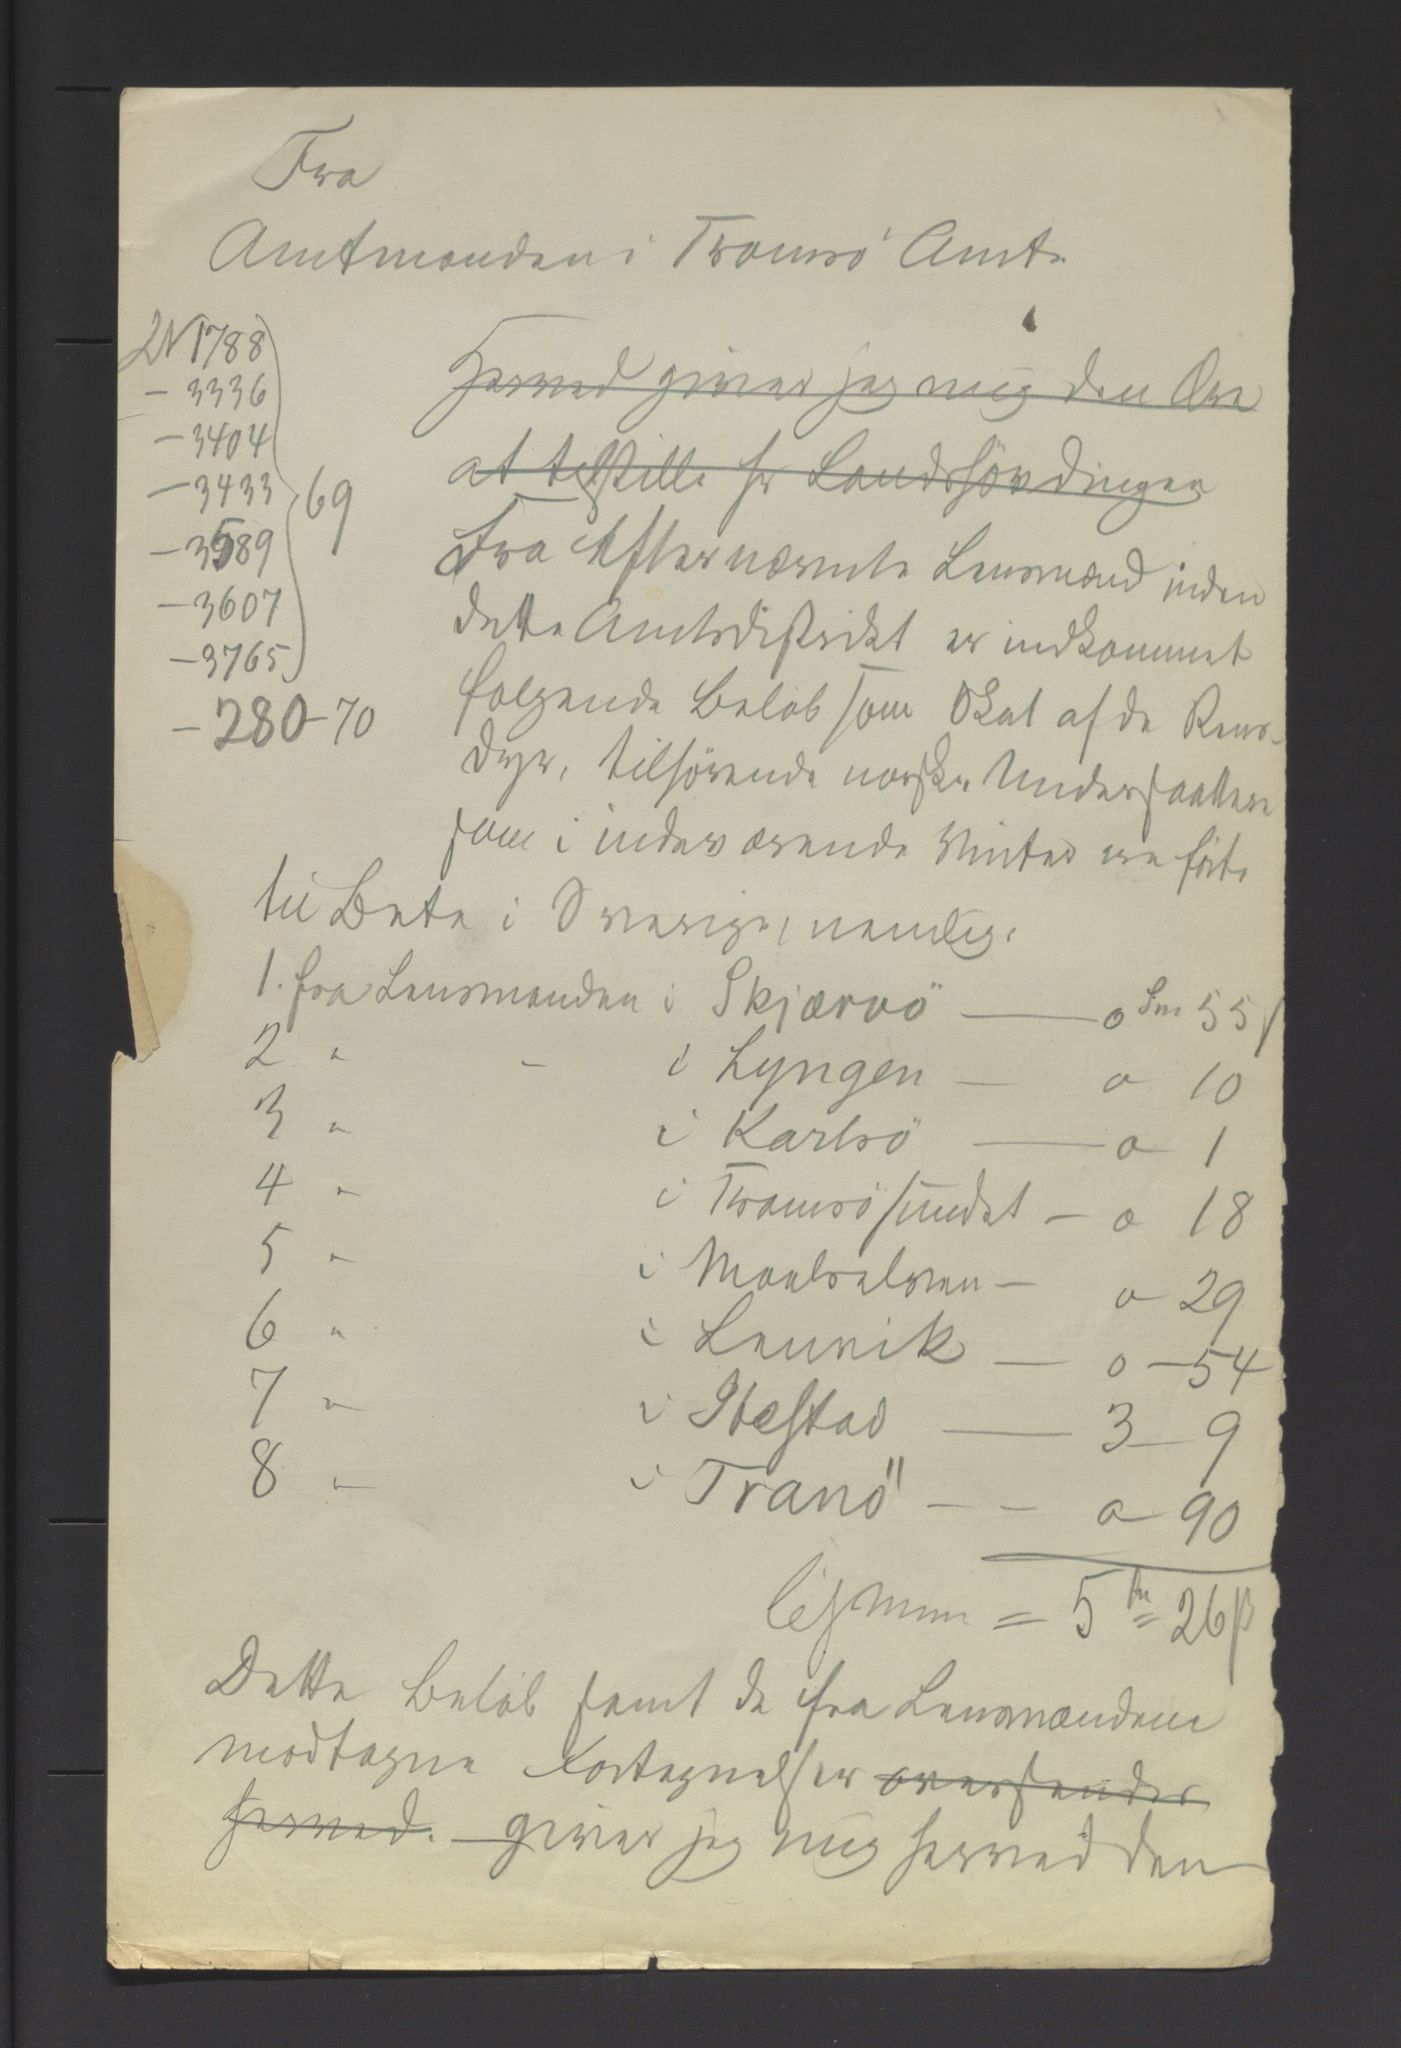 Fra
Amtmanden i Tromsö Amt.
2N 1788
- 3336
- 3404
- 3433
- 3589
- 3607
- 3765
69
- 280-70
Herved giver jeg mig den Ære
at tilstille Hr Landshövdingen
Fra Efternævnte Lensmænd inden
dette Amtsdistrikt er indkommet
følgende Belöb som Skat af de Rens-
dyr, tilhörende norske Undersaatter
som i indeværende Vinter ere förte
til Bete i Sverige, nemlig:
1. fra Lensmanden i Skjærvö — o Spd 55 ß
2 " - i Lyngen — o 10
3 " i Karlsö — o 1
4 " i Tromsösundet — o 18
5 " i Maalselven — o 29
6 " i Lenvik — o — 54
7 " i Ibestad — 3 — 9
8 " i Tranö — — o 90
tilsammen = 5 = 26 ß
Dette Belöb samt de fra Lensmændene
modtagne Fortegnelser oversendes
herved. giver jeg mig herved den